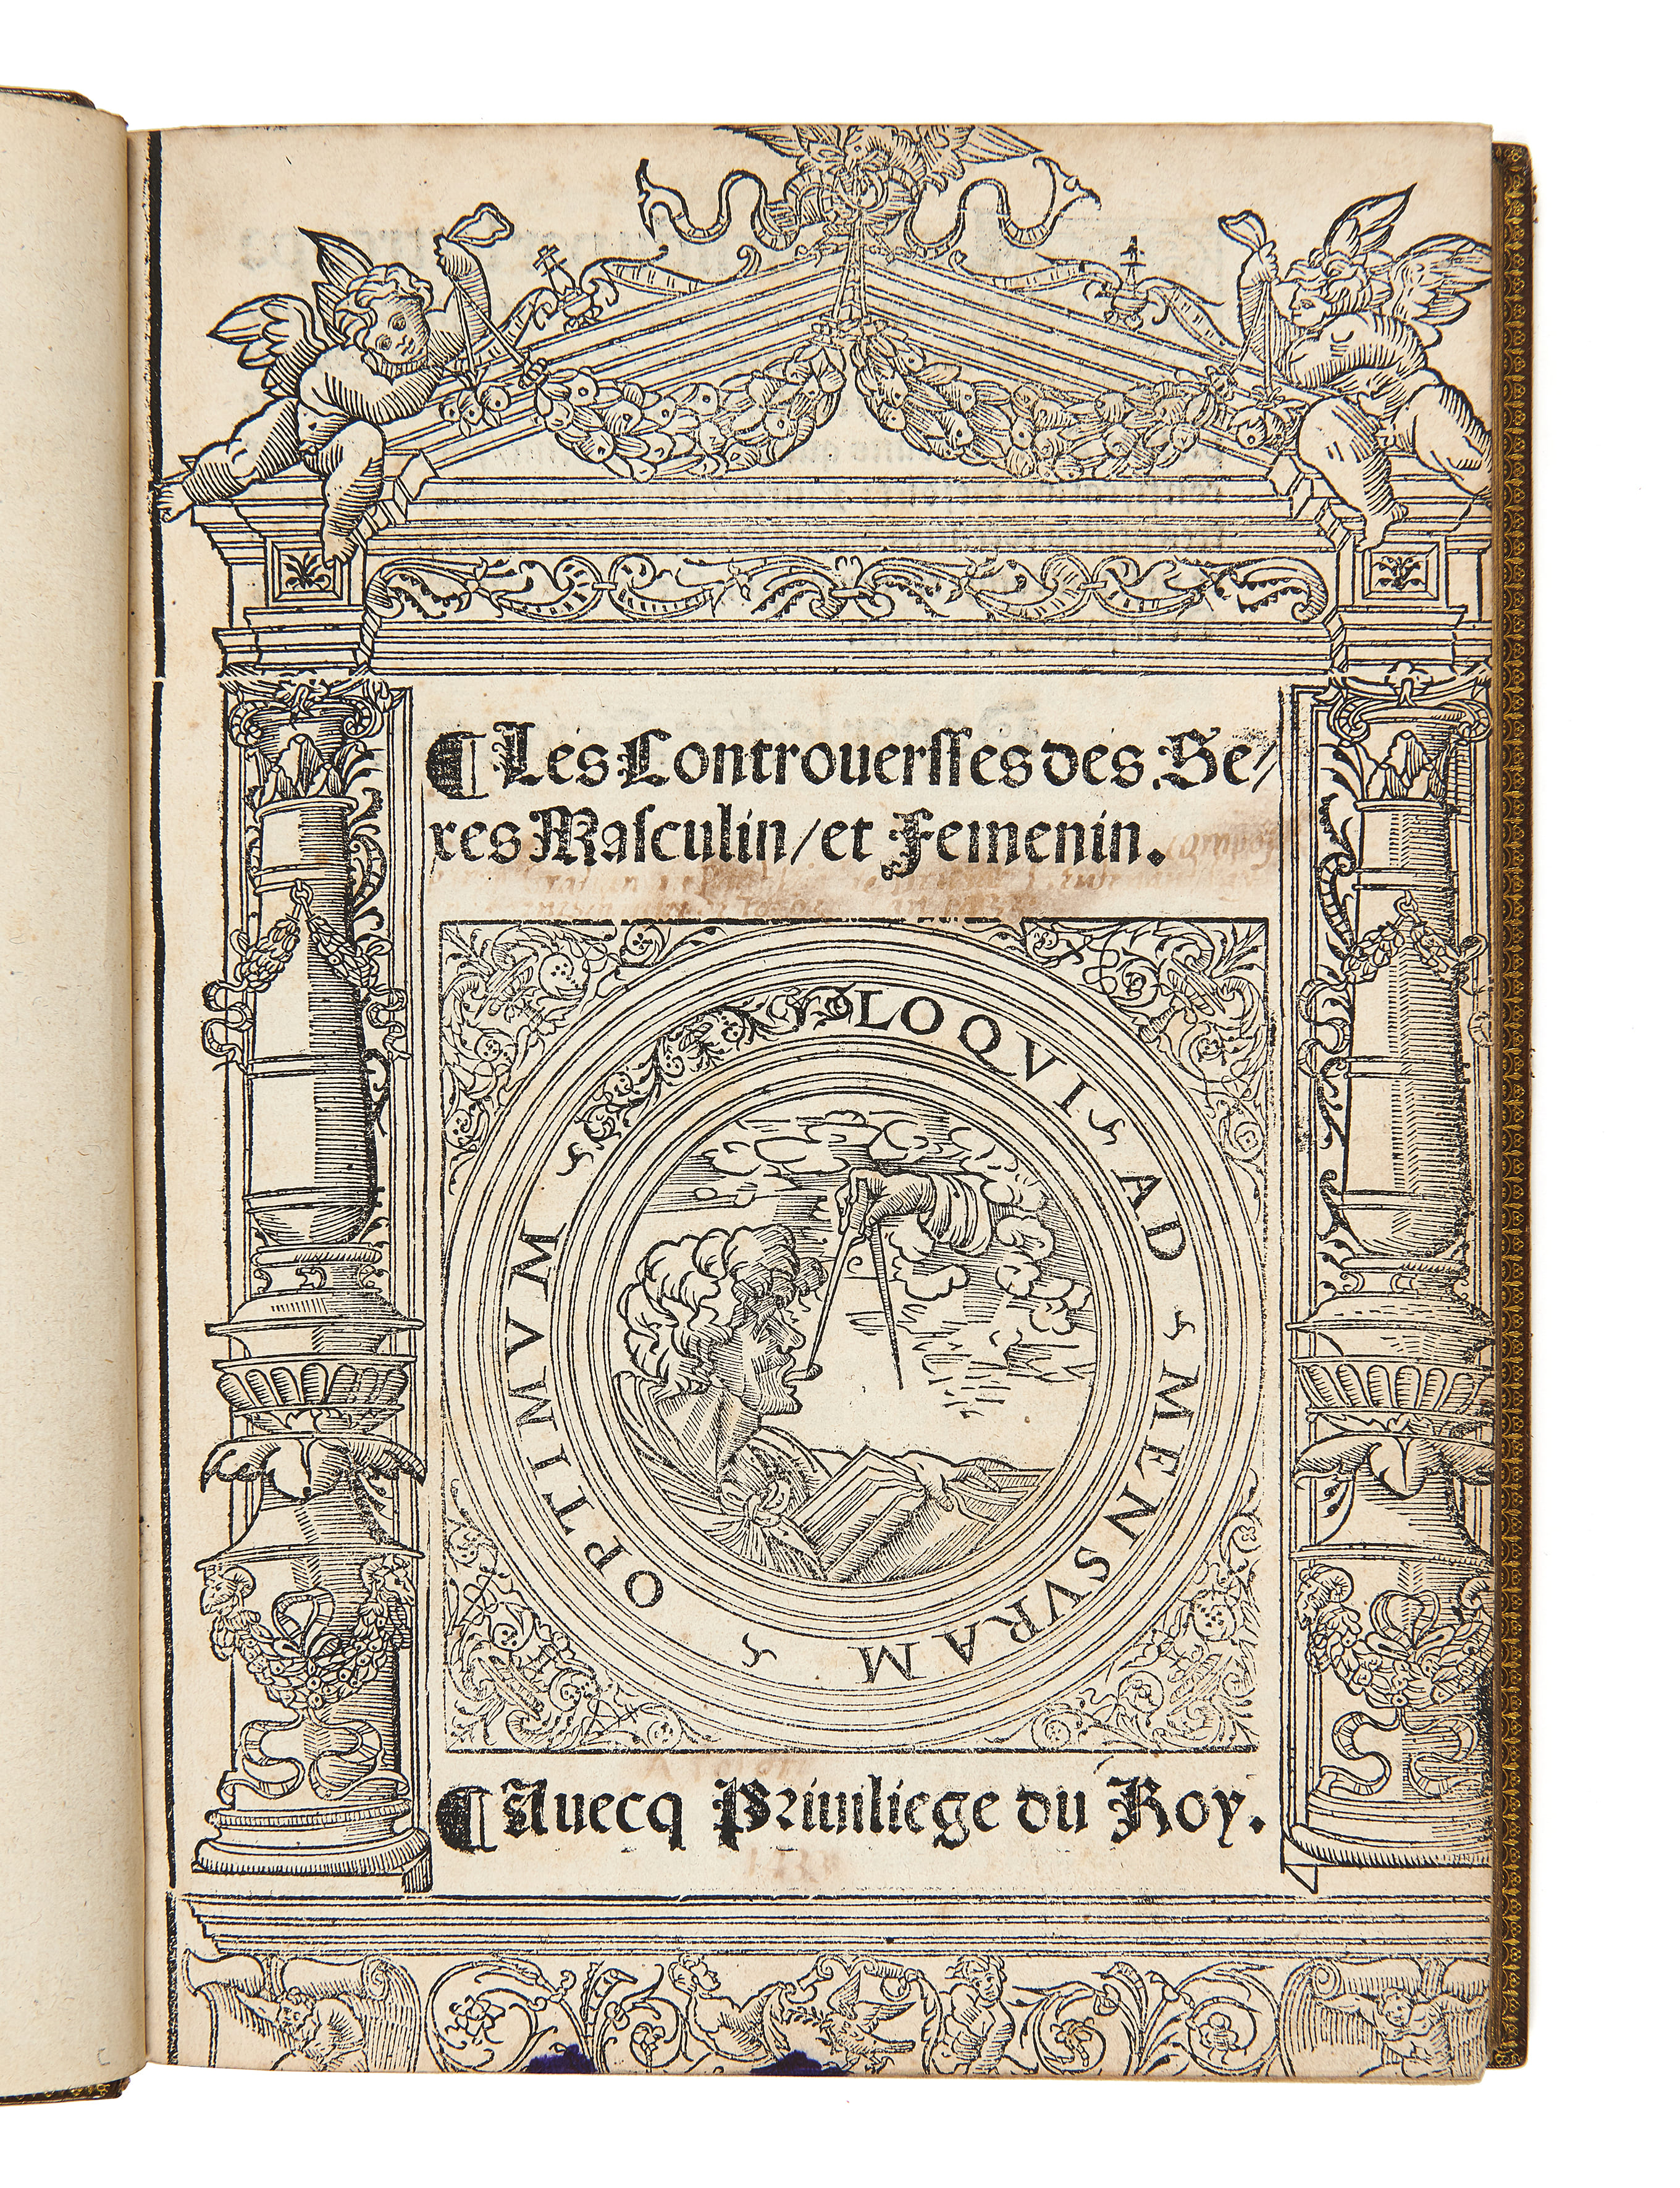 ¶ Les Controuersses des Se/
xes Masculin/et Femenin.
LOQVI AD MENSVRAM OPTIMVM
¶ Auecq Priuiliege du Roy.